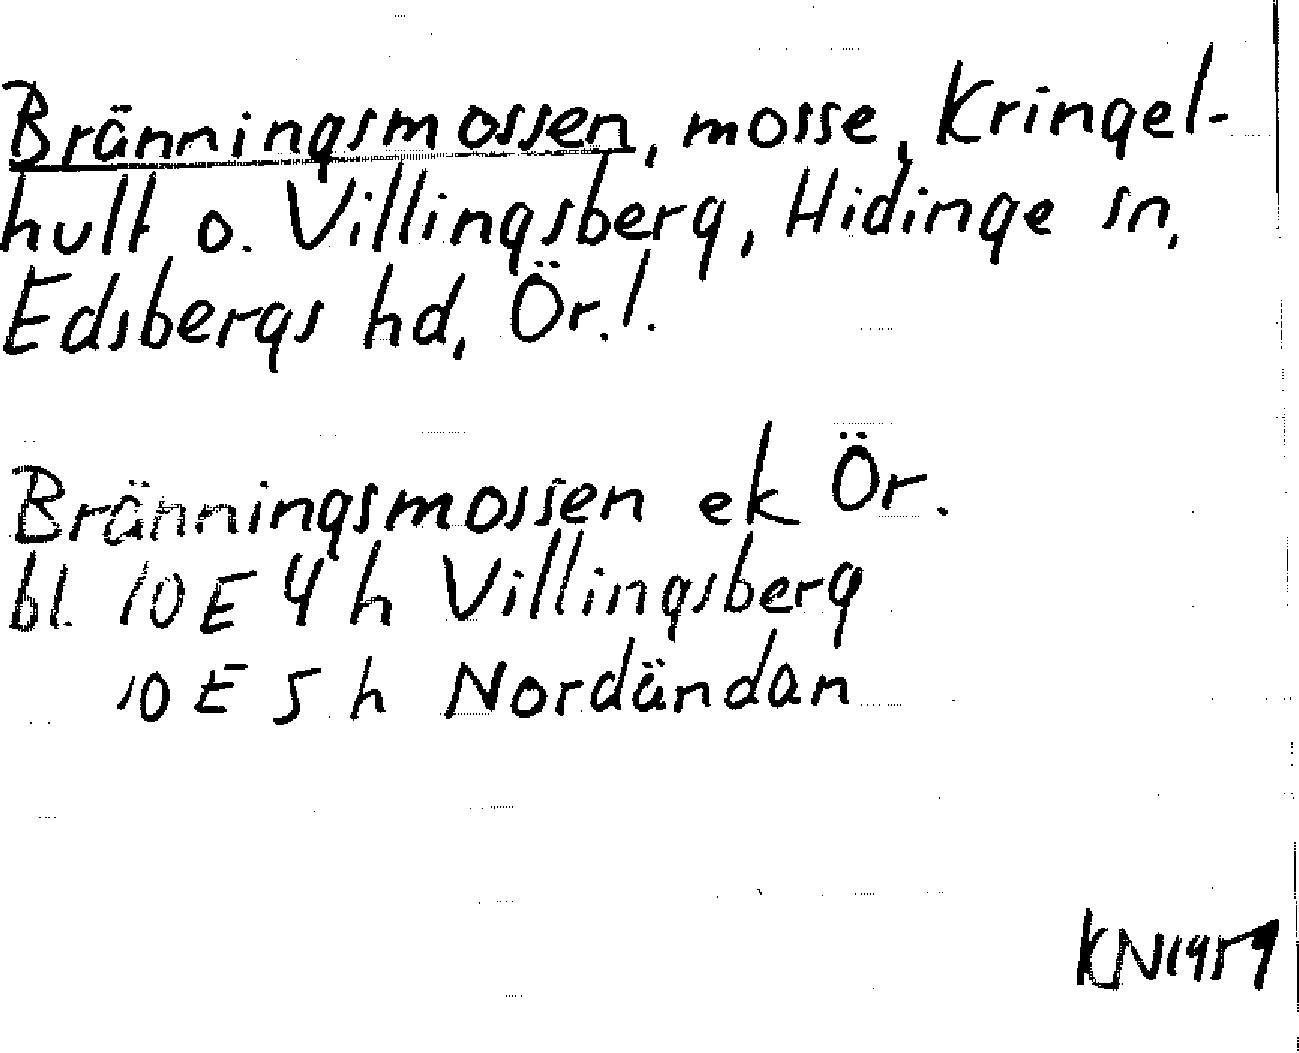 Bränningsmossen, mosse, Kringel-
hult o. Villingsberg, Hidinge sn,
Edsbergs hd, Ör.l.
Bränningsmossen ek Ör.
bl. 10 E 4 h Villingsberg
10 E 5 h Nordändan
KN1959